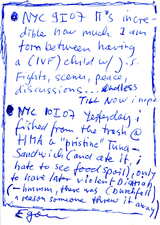 NYC 9I07 IT'S incre-
dible how much I am
torn between having
a (IVF) child w/ J. S.
Fights, scenes, peace,
discussions... endless
Till Now i nope
NYC 10I07 Yesterday i
fished from the trash @
HMA a "pristine" Tuna-
Sandwich (and ate it, i
hate to see food spoil), only
to have later violent Diarrhea
(-hmmm, there was
a reason someone threw it away)